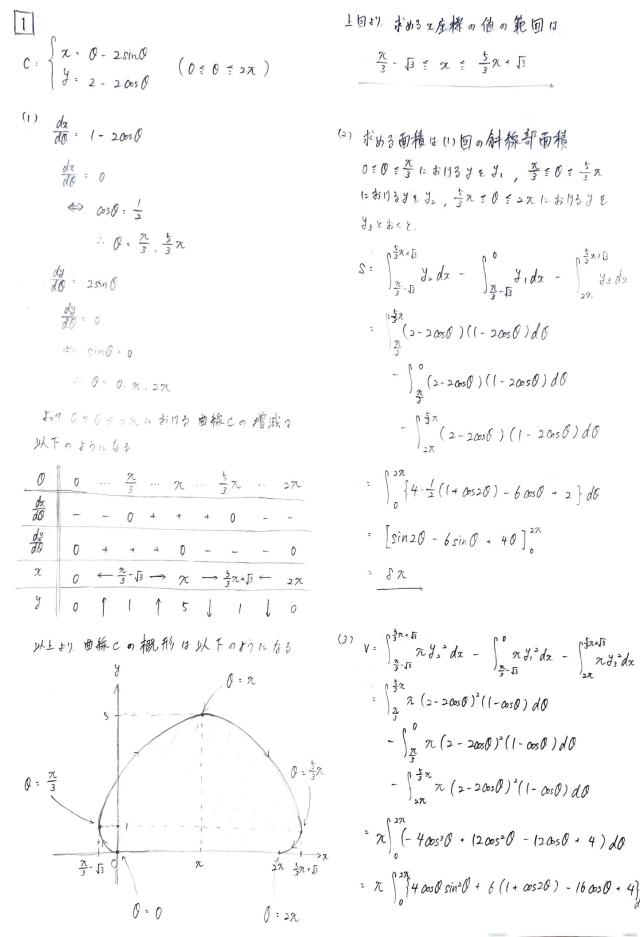 1
C: { x = θ - 2sinθ
y = 2 - 2cosθ (0 ≤ θ ≤ 2π)
(1) dx/dθ = 1 - 2cosθ
dx/dθ = 0
⇔ cosθ = 1/2
∴ θ = π/3, 5/3π
dy/dθ = 2sinθ
dy/dθ = 0
⇔ sinθ = 0
∴ θ = 0, π, 2π
よって 0 ≤ θ ≤ 2π における 曲線Cの増減は
以下のようになる
θ 0 … π/3 … π … 5/3π … 2π
dx/dθ - - 0 + + + 0 - -
dy/dθ 0 + + + 0 - - - 0
x 0 ← π/3-√3 → π → 5/3π+√3 ← 2π
y 0 ↑ 1 ↑ 5 ↓ 1 ↓ 0
以上より 曲線Cの概形は以下のようになる
y
θ = π
5
θ = π/3
θ = 5/3π
1
π/3-√3 O π 2π 5/3π+√3 x
θ = 0 θ = 2π
上図より 求めるx座標の値の範囲は
π/3 - √3 ≤ x ≤ 5/3π + √3
(2) 求める面積は(1)図の斜線部面積
0 ≤ θ ≤ π/3 におけるyをy₁, π/3 ≤ θ ≤ 5/3π
におけるyをy₂, 5/3π ≤ θ ≤ 2π におけるyを
y₃とおくと、
S = ∫_{π/3-√3}^{5/3π+√3} y₂dx - ∫_{π/3-√3}^{0} y₁dx - ∫_{2π}^{5/3π+√3} y₃dx
= ∫_{π/3}^{5/3π} (2-2cosθ)(1-2cosθ)dθ
- ∫_{π/3}^{0} (2-2cosθ)(1-2cosθ)dθ
- ∫_{2π}^{5/3π} (2-2cosθ)(1-2cosθ)dθ
= ∫_{0}^{2π} {4・1/2(1+cos2θ) - 6cosθ + 2} dθ
= [sin2θ - 6sinθ + 4θ]_{0}^{2π}
= 8π
(3) V = ∫_{π/3-√3}^{5/3π+√3} πy₂²dx - ∫_{π/3-√3}^{0} πy₁²dx - ∫_{2π}^{5/3π+√3} πy₃²dx
= ∫_{π/3}^{5/3π} π(2-2cosθ)²(1-cosθ)dθ
- ∫_{π/3}^{0} π(2-2cosθ)²(1-cosθ)dθ
- ∫_{2π}^{5/3π} π(2-2cosθ)²(1-cosθ)dθ
= π∫_{0}^{2π} (-4cos³θ + 12cos²θ - 12cosθ + 4)dθ
= π∫_{0}^{2π} {4cosθsin²θ + 6(1+cos2θ) - 16cosθ + 4}d